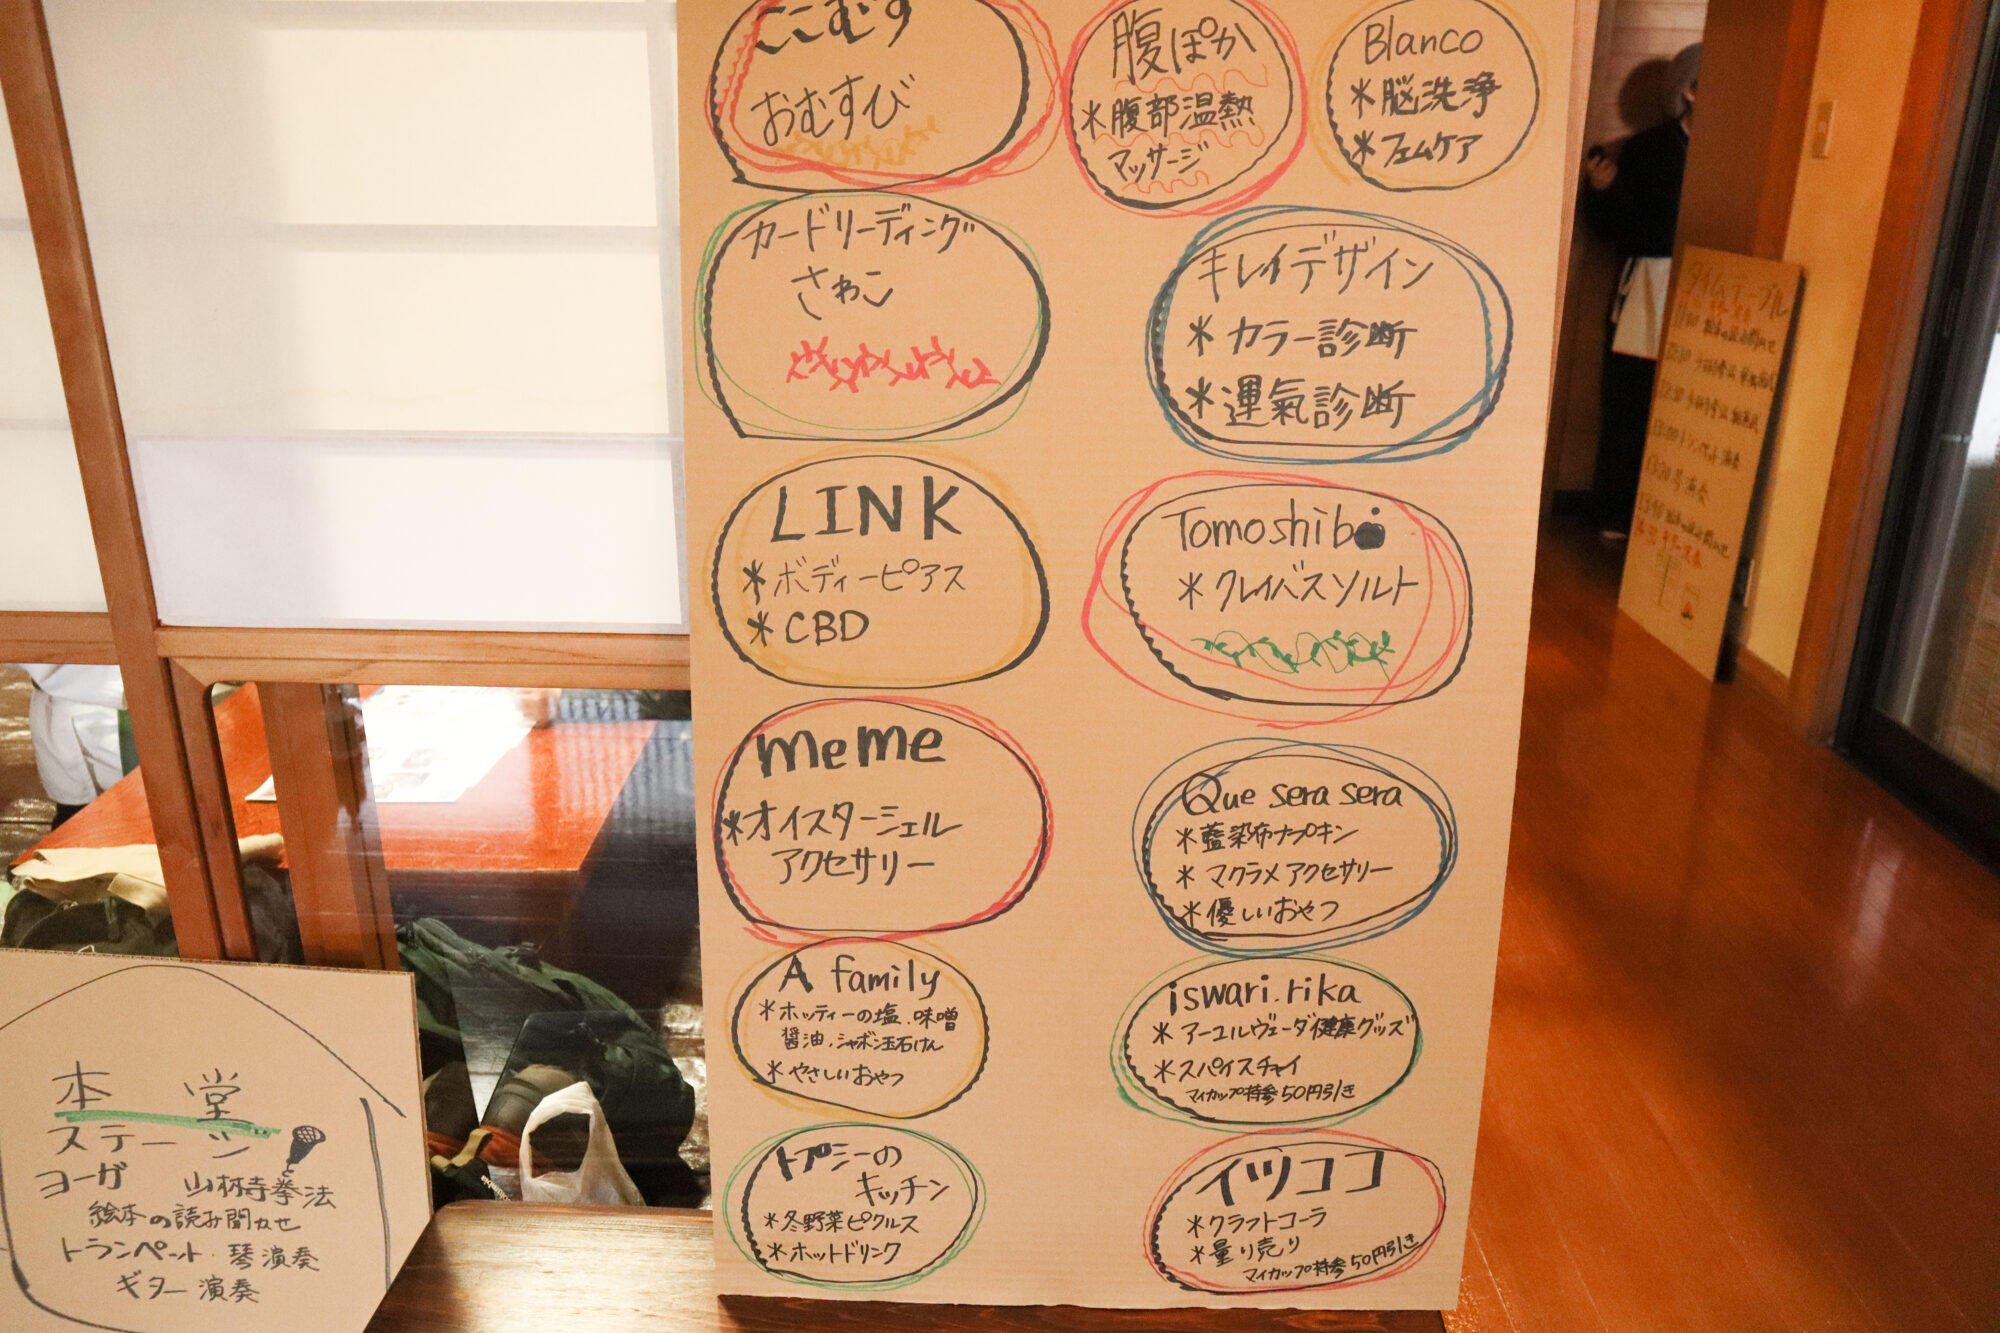 ここむす
おむすび
腹ぽか
*腹部温熱
マッサージ
Blanco
*脳洗浄
*フェムケア
カードリーディング
さわこ
キレイデザイン
*カラー診断
*運氣診断
LINK
*ボディーピアス
*CBD
Tomoshibi
*クレイバスソルト
meme
*オイスターシェル
アクセサリー
Que sera sera
*藍染布ナプキン
*マクラメアクセサリー
*優しいおやつ
A family
*ホッティーの塩.味噌
醤油.シャボン玉石けん
*やさしいおやつ
iswari.rika
*アーユルヴェーダ健康グッズ
*スパイスチャイ
マイカップ持参50円引き
トプシーの
キッチン
*冬野菜ピクルス
*ホットドリンク
イツココ
*クラフトコーラ
*量り売り
マイカップ持参50円引き
本堂
ステージ
ヨーガ 山林寺拳法
絵本の読み聞かせ
トランペット.琴演奏
ギター演奏
タイムテーブル